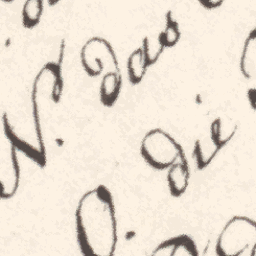 N. das
O. die